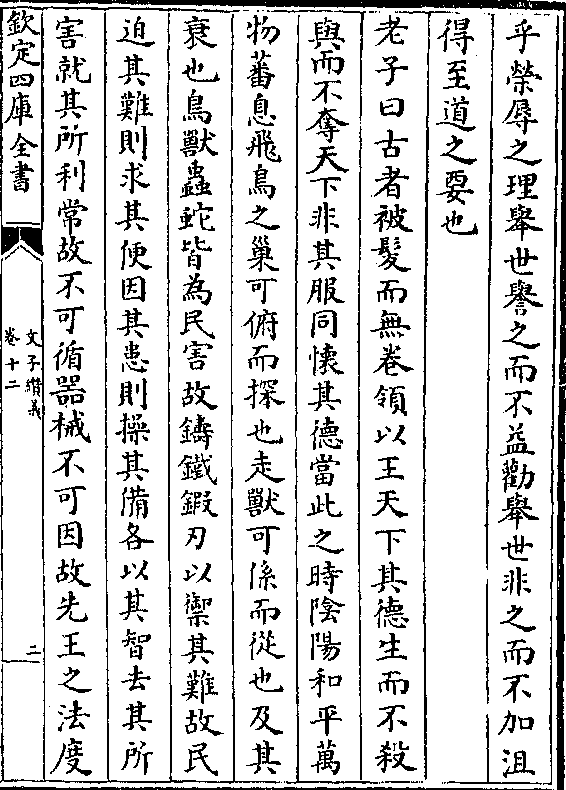 乎榮辱之理舉世譽之而不益勸舉世非之而不加沮
得至道之要也
老子曰古者被髮而無卷領以王天下其德生而不殺
與而不奪天下非其服同懷其德當此之時陰陽和平萬
物蕃息飛鳥之巢可俯而探也走獸可係而從也及其
衰也鳥獸蟲蛇皆為民害故鑄鐵鍛刃以禦其難故民
迫其難則求其便因其患則操其備各以其智去其所
害就其所利常故不可循器械不可因故先王之法度
欽定四庫全書
文子纘義
卷十二
二